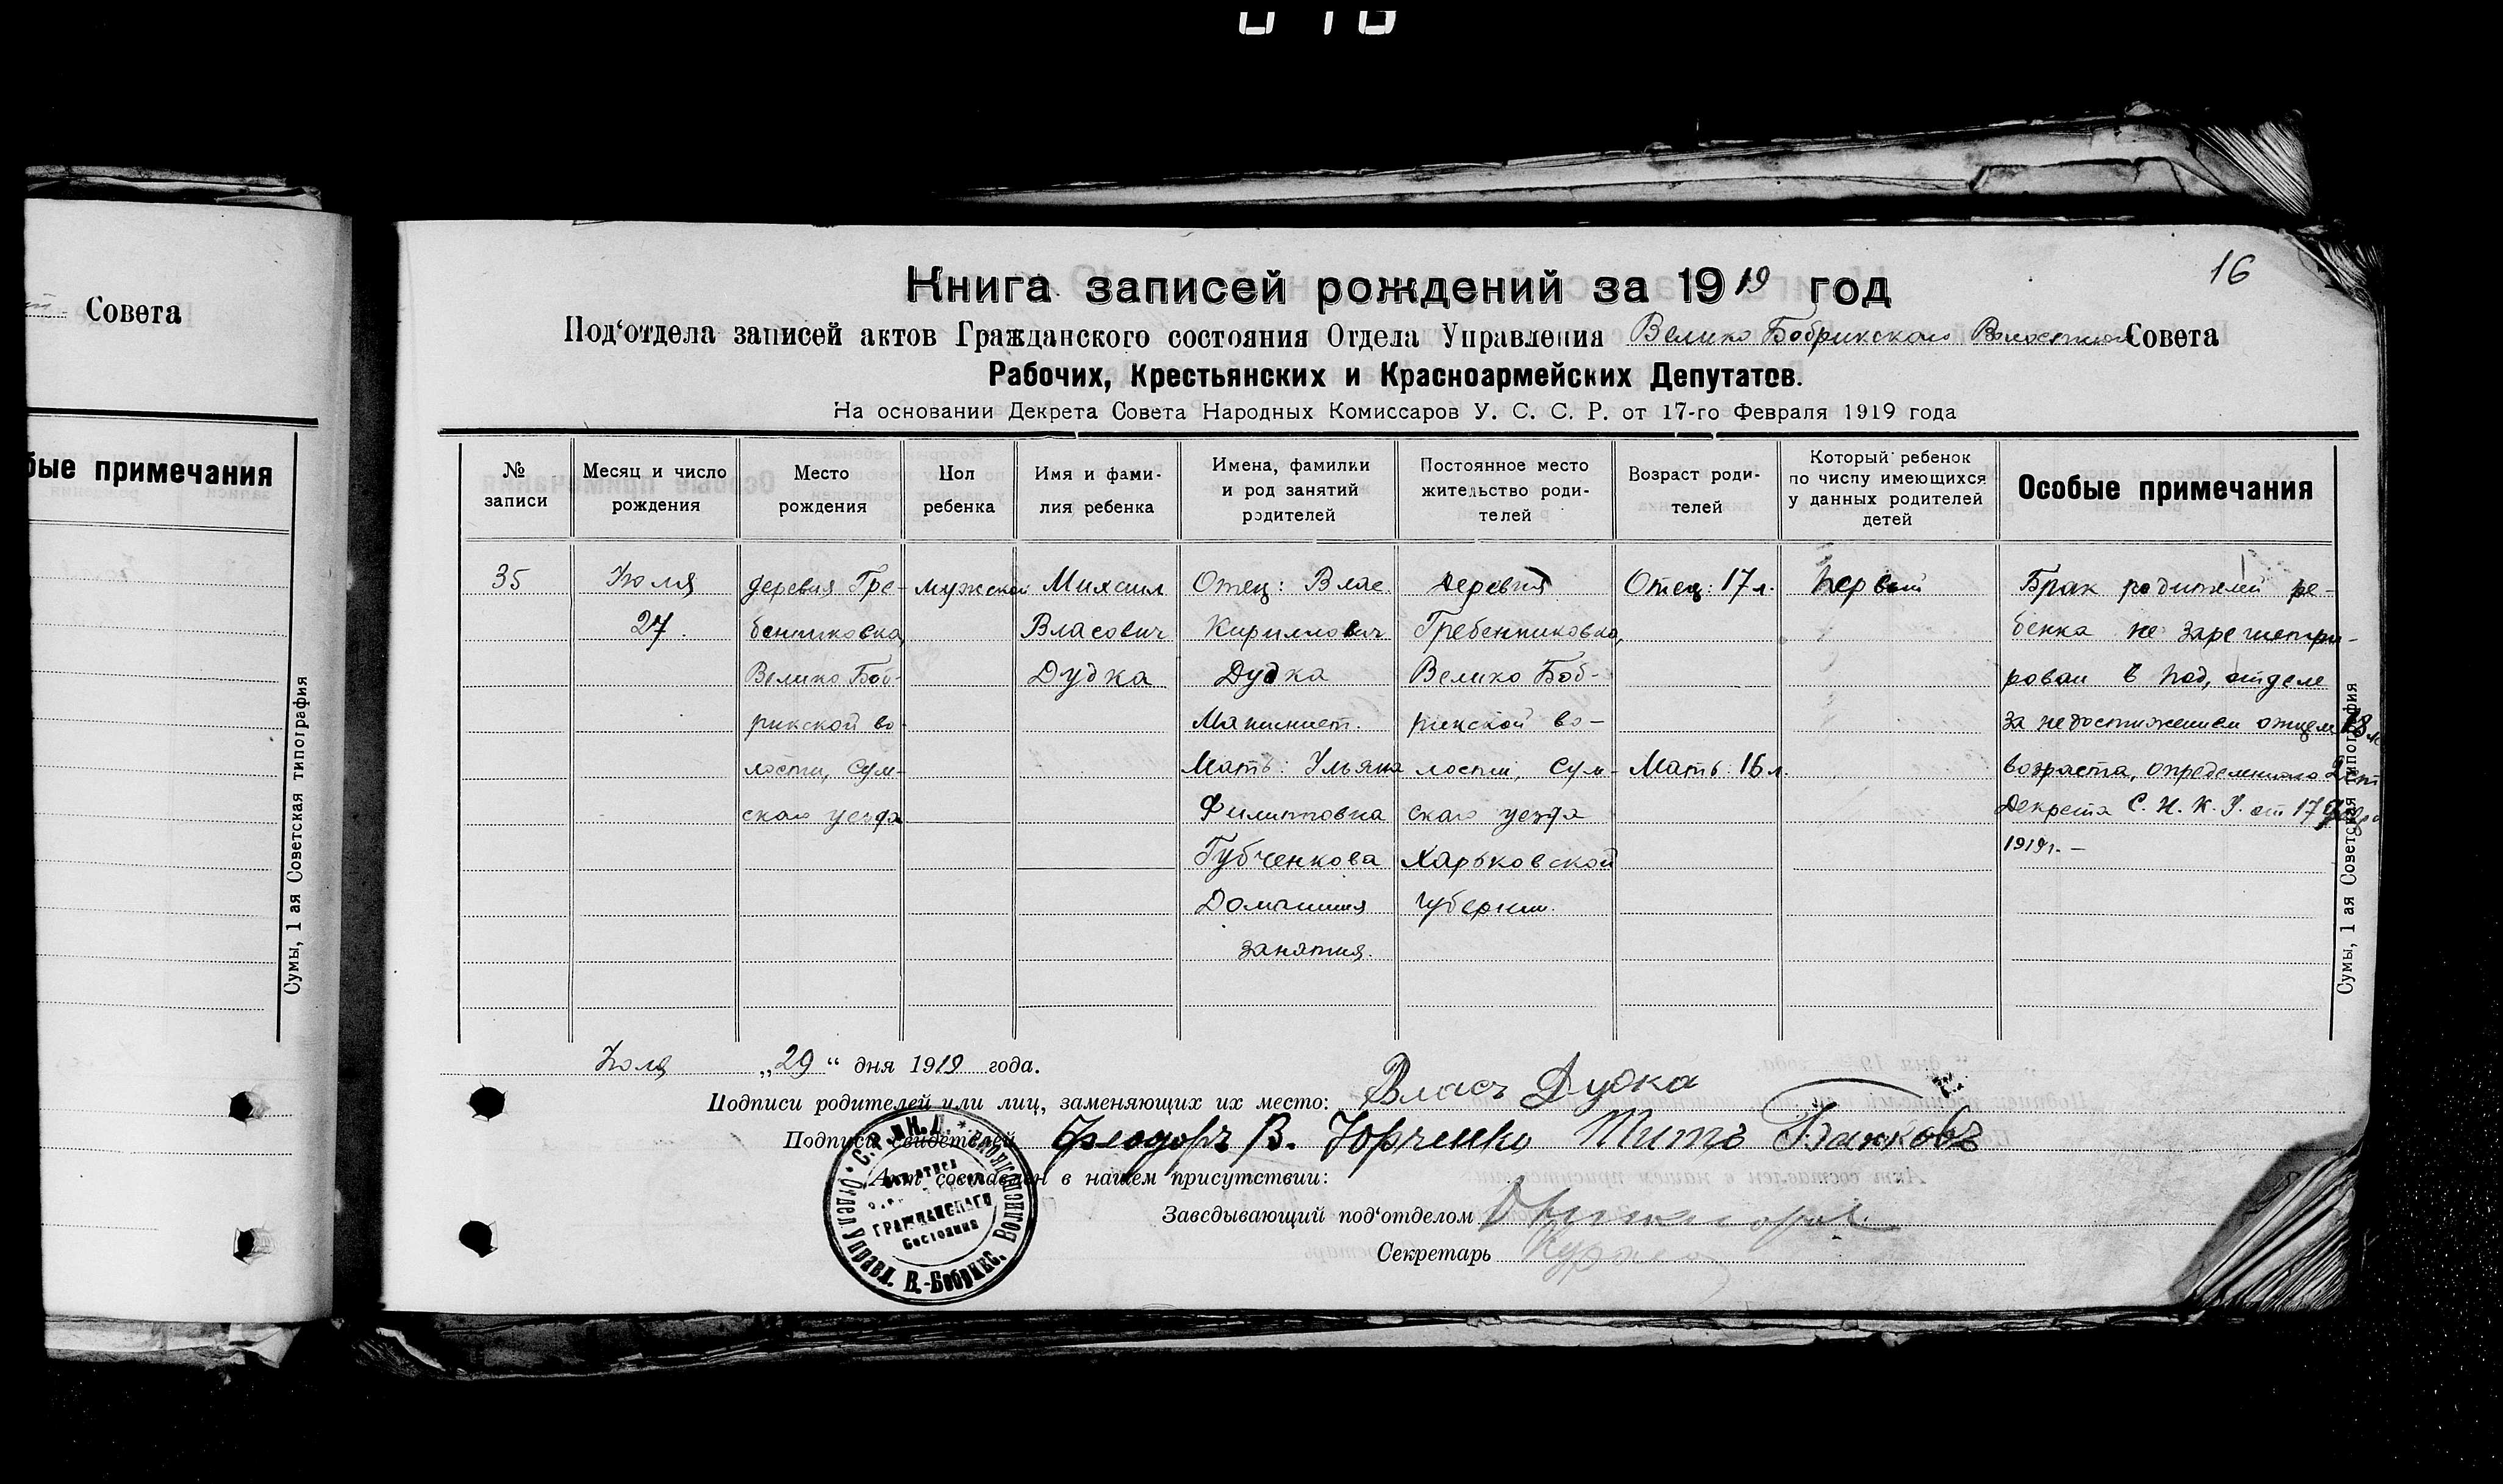 Совета
бые примечания
Сумы, 1 ая Советская типография
16
Книга записей рождений за 1919 год
Под‘отдела записей актов Гражданского состояния Отдела Управления Велико Бобрикского Волостного Совета
Рабочих, Крестьянских и Красноармейских Депутатов.
На основании Декрета Совета Народных Комиссаров У. С. С. Р. от 17-го Февраля 1919 года
№ записи
Месяц и число рождения
Место рождения
Пол ребенка
Имя и фами-
лия ребенка
Имена, фамилии
и род занятий
родителей
Постоянное место
жительство роди-
телей
Возраст роди-
телей
Который ребенок
по числу имеющихся
у данных родителей
детей
Особые примечания
35
Июля
27.
деревня Гре-
бенниковка,
Велико Боб-
рикской во-
лости, Сум-
скаго уезда
мужской
Михаил
Власович
Дудка
Отец: Влас
Кириллович
Дудка
Машинист.
Мать: Ульяна
Филипповна
Губченкова
Домашния
занятия.
Деревня
Гребенниковка,
Велико Боб-
рикской во-
лости, Сум-
скаго уезда
Харьковской
губернии.
Отец: 17 л.
Мать: 16 л.
Первый
Брак родителей ре-
бенка не зарегистри-
рован в под, отделе
за недостижением отцем 18 л.
возраста, определеннаго
Декрета С. Н. К. У. от 17 Февр.
1919 г. –
Сумы, 1 ая Советская типография
Июля „29“ дня 1919 года.
Подписи родителей или лиц, заменяющих их место: Власъ Дудка
Подписи свидетелей Феодоръ В. Юрченко Титъ Бажковъ
Акт составлен в нашем присутствии:
Заведывающий под‘отделом
Секретарь
ГРАЖДАНСКАГО
Состояния
Отдел Управл. В.-Бобрикс. Волисполкома